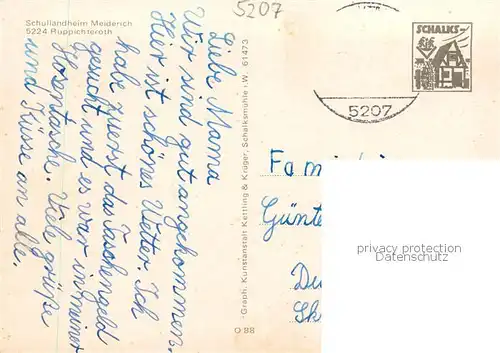 Schullandheim Meiderich
5224 Ruppichteroth
5207
Liebe Mama
Wir sind gut angekommen.
Hier ist schönes Wetter. Ich
habe zuerst das Taschengeld
gesucht und es war in meiner
Hosentasche. Viel grüße
und Küsse an alle.
Graph. Kunstanstalt Kettling & Krüger, Schalksmühle i.W. 61473
O 88
SCHALKS-
5207
Fam
Günte
privacy protection
Datenschutz